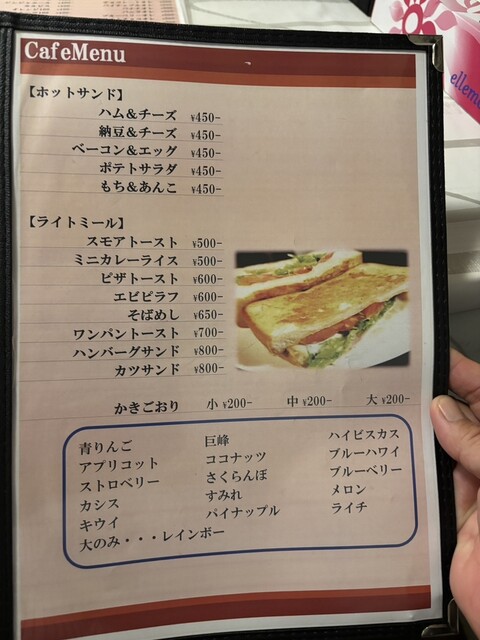 CafeMenu
【ホットサンド】
ハム&チーズ ¥450-
納豆&チーズ ¥450-
ベーコン&エッグ ¥450-
ポテトサラダ ¥450-
もち&あんこ ¥450-
【ライトミール】
スモアトースト ¥500-
ミニカレーライス ¥500-
ピザトースト ¥600-
エビピラフ ¥600-
そばめし ¥650-
ワンパントースト ¥700-
ハンバーグサンド ¥800-
カツサンド ¥800-
かきごおり 小 ¥200- 中 ¥200- 大 ¥200-
青りんご 巨峰 ハイビスカス
アプリコット ココナッツ ブルーハワイ
ストロベリー さくらんぼ ブルーベリー
カシス すみれ メロン
キウイ パイナップル ライチ
大のみ・・・レインボー